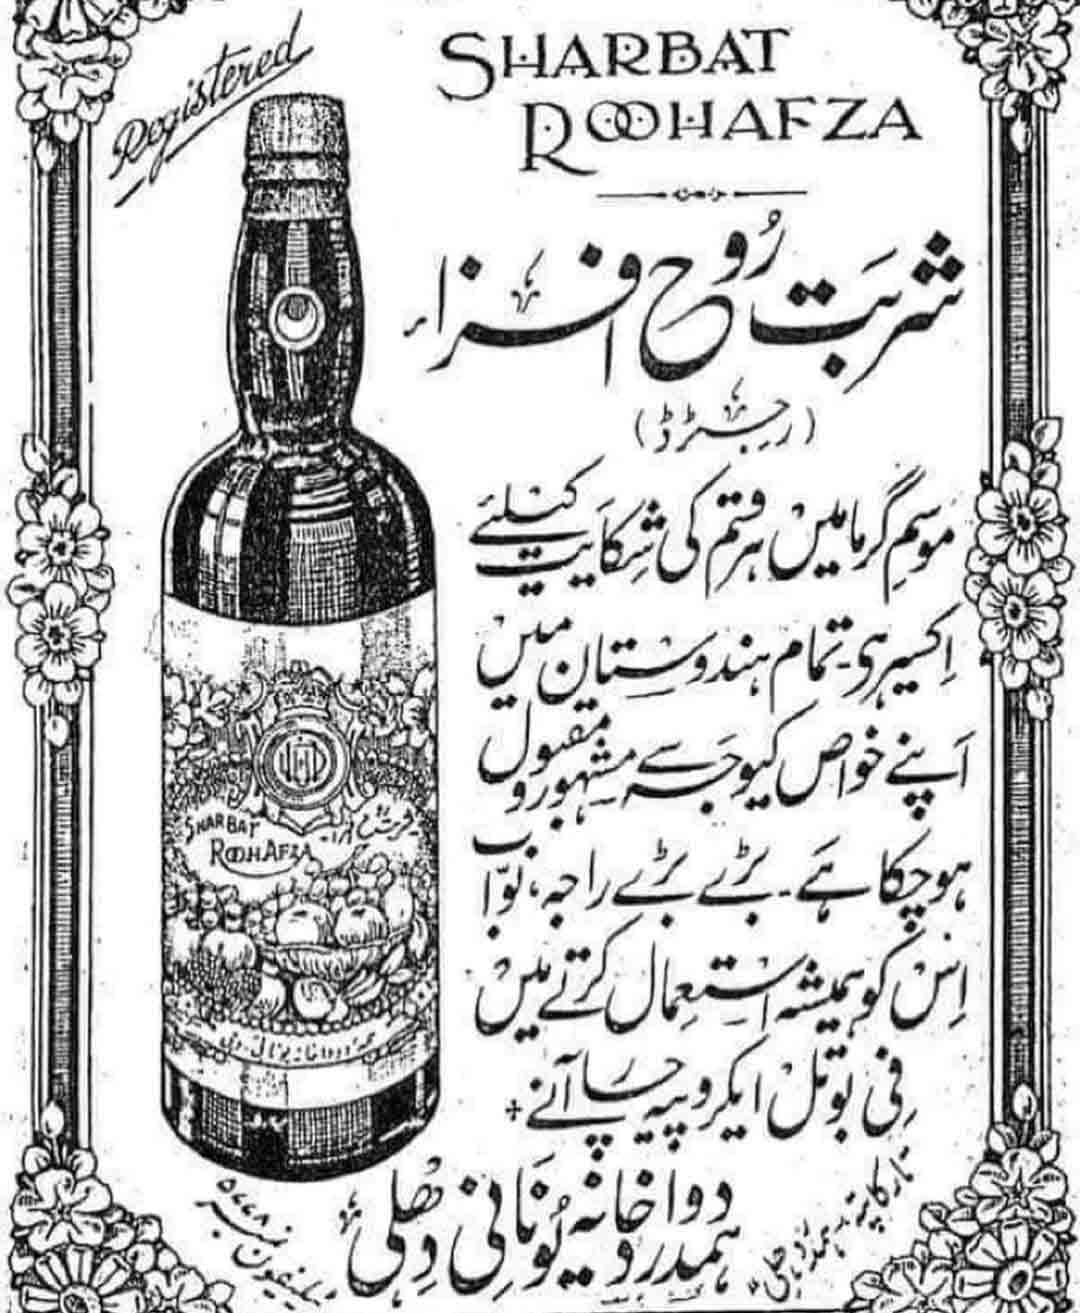 Registered
SHARBAT
ROOHAFZA
شربت رُوح افزاء
(رجسٹرڈ)
موسم گرما میں ہر قسم کی شکایت کیلئے
اکسیر ہی۔ تمام ہندوستان میں
اَپنے خواص کیوجہ سے مشہور و مقبول
ہوچکا ہے۔ بڑے بڑے راجہ، نوّاب
اِس کو ہمیشہ استعمال کرتے ہیں
فی بوتل ایکروپیہ چار آنے
SHARBAT
ROOHAFZA
تار کا پتہ ہمدرد دہلی
ہمدرد دواخانہ یُونانی دہلی
ٹیلیفون نمبر ۵۷۷۸